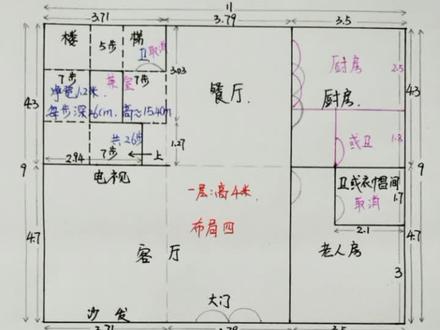 11
3.71 3.79 3.5
楼 5步 梯
卫取消
7步 茶室 7步
净宽1.2米
3.03
每步深26cm,高≈15.40m
餐厅
厨房 2.5
厨房
4.3 4.3
共26步
或卫 1.8
1.27
2.94 7步 上
9 9
电视
一层:高4米
卫或衣帽间
取消 1.7
布局四
2.1
4.7 4.7
客厅
老人房
3
大门
沙发
3.71 3.79 3.5